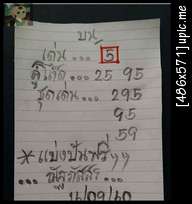 บน
เด่น... 5
คู่โต๊ด... 25 95
ชุดเด่น... 295
95
59
*แบ่งปันฟรีๆๆ
16/09/60
[486x571]upic.me